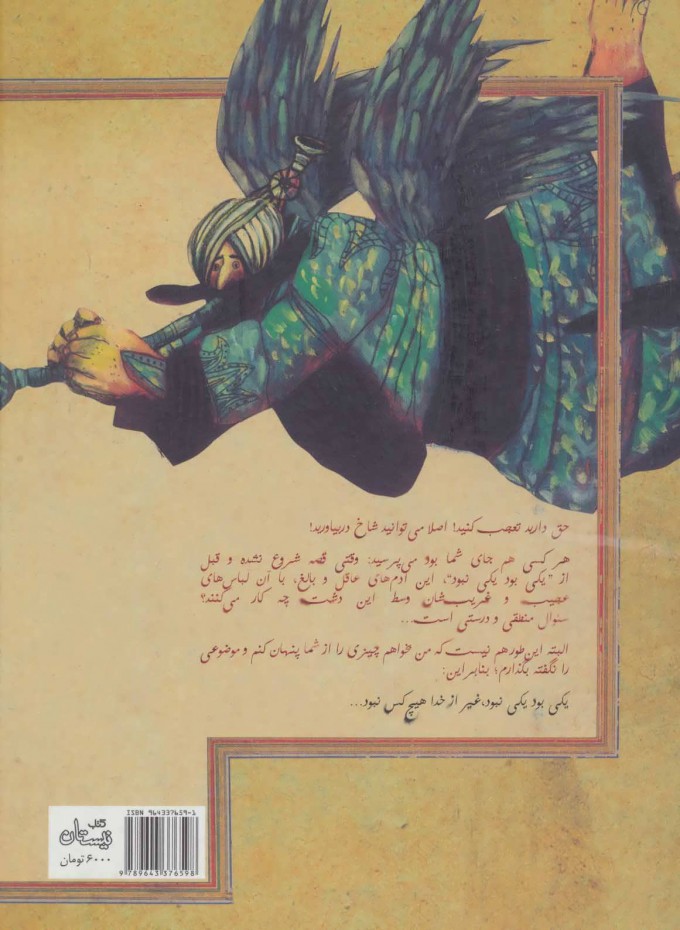 حق دارید تعجب کنید! اصلا می‌توانید شاخ دربیاورید!
هر کسی هم جای شما بود می‌پرسید: وقتی قصه شروع نشده و قبل
از "یکی بود یکی نبود"، این آدم‌های عاقل و بالغ، با آن لباس‌های
عجیب و غریب‌شان وسط این دشت چه کار می‌کنند؟
سئوال منطقی و درستی است...
البته این‌طور هم نیست که من بخواهم چیزی را از شما پنهان کنم و موضوعی
را نگفته بگذارم؛ بنابراین:
یکی بود یکی نبود، غیر از خدا هیچ‌کس نبود...
ISBN 964337659-1
کتاب
نیستان
۶۰۰۰ تومان
9 789643 376598